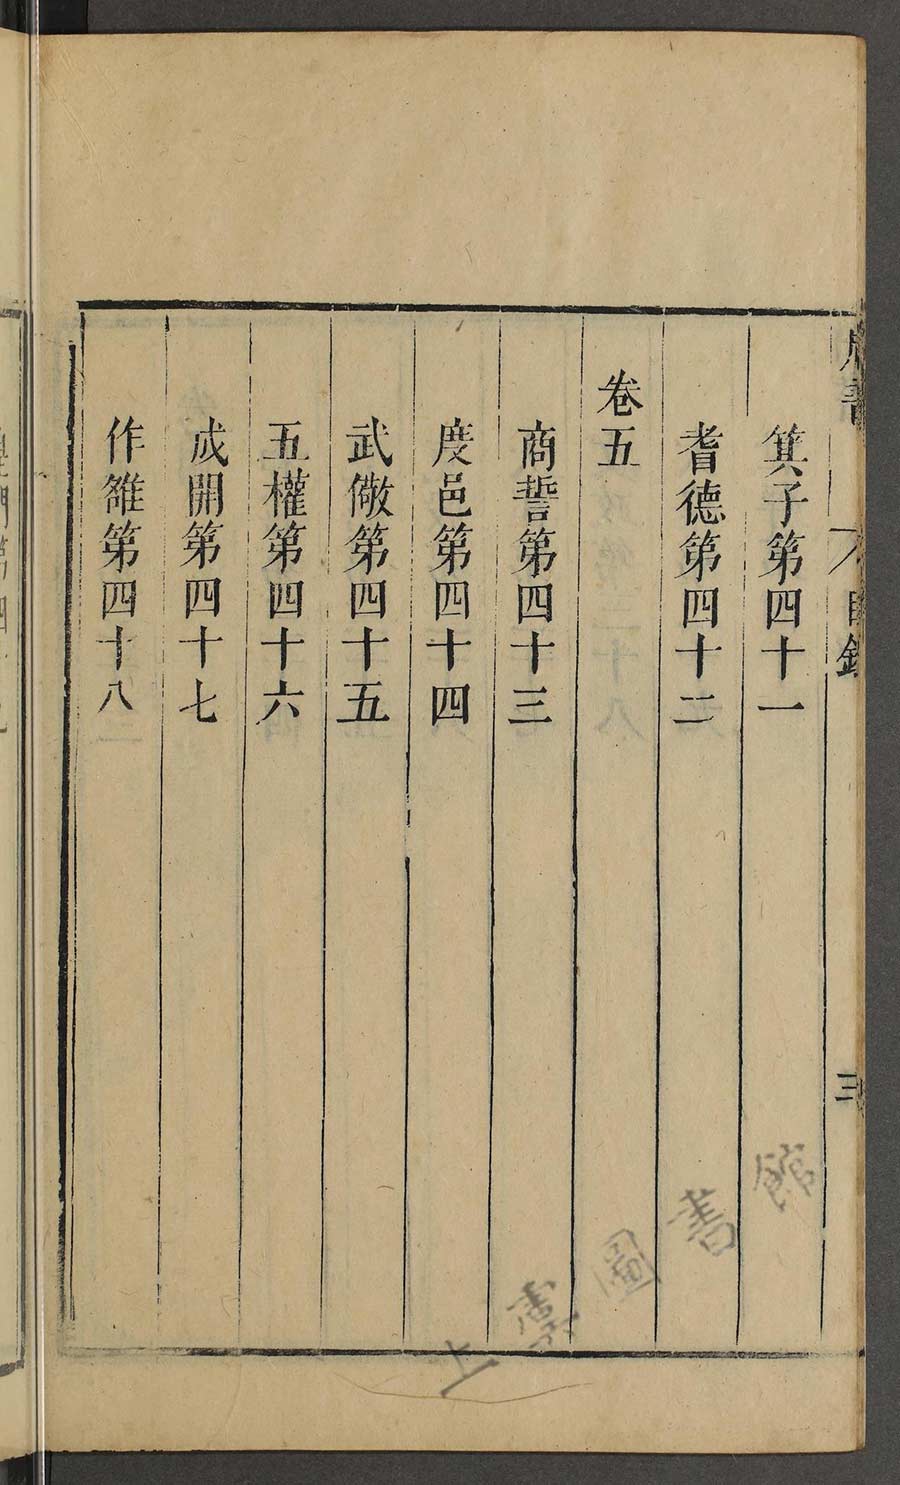 箕子第四十一
耆德第四十二
卷五
商誓第四十三
度邑第四十四
武儆第四十五
五權第四十六
成開第四十七
作雒第四十八
目錄
三
上虞圖書館